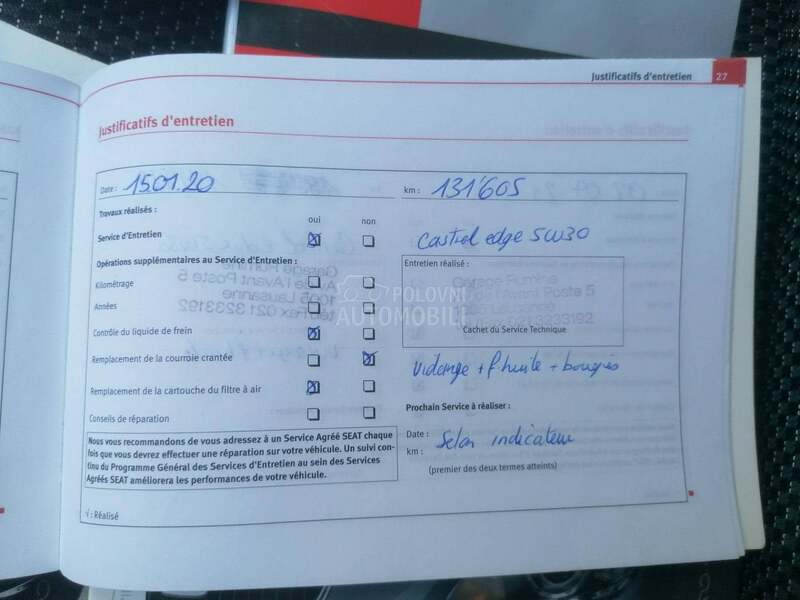 Justificatifs d'entretien 27
Justificatifs d'entretien
Date : 15.01.20
km : 131'605
Travaux réalisés :
oui non
Service d'Entretien
Castrol edge 5W30
Opérations supplémentaires au Service d'Entretien :
Entretien réalisé :
Kilométrage
Garage Rumine
Av. de l'Avant Poste 5
1005 Lausanne
Années
Cachet du Service Technique
Contrôle du liquide de frein
Remplacement de la courroie crantée
Vidange + f. huile + bougies
Remplacement de la cartouche du filtre à air
Prochain Service à réaliser :
Conseils de réparation
Date :
Selon indicateur
km :
(premier des deux termes atteints)
Nous vous recommandons de vous adressez à un Service Agréé SEAT chaque
fois que vous devrez effectuer une réparation sur votre véhicule. Un suivi con-
tinu du Programme Général des Services d'Entretien au sein des Services
Agréés SEAT améliorera les performances de votre véhicule.
√ : Réalisé
POLOVNI
AUTOMOBILI